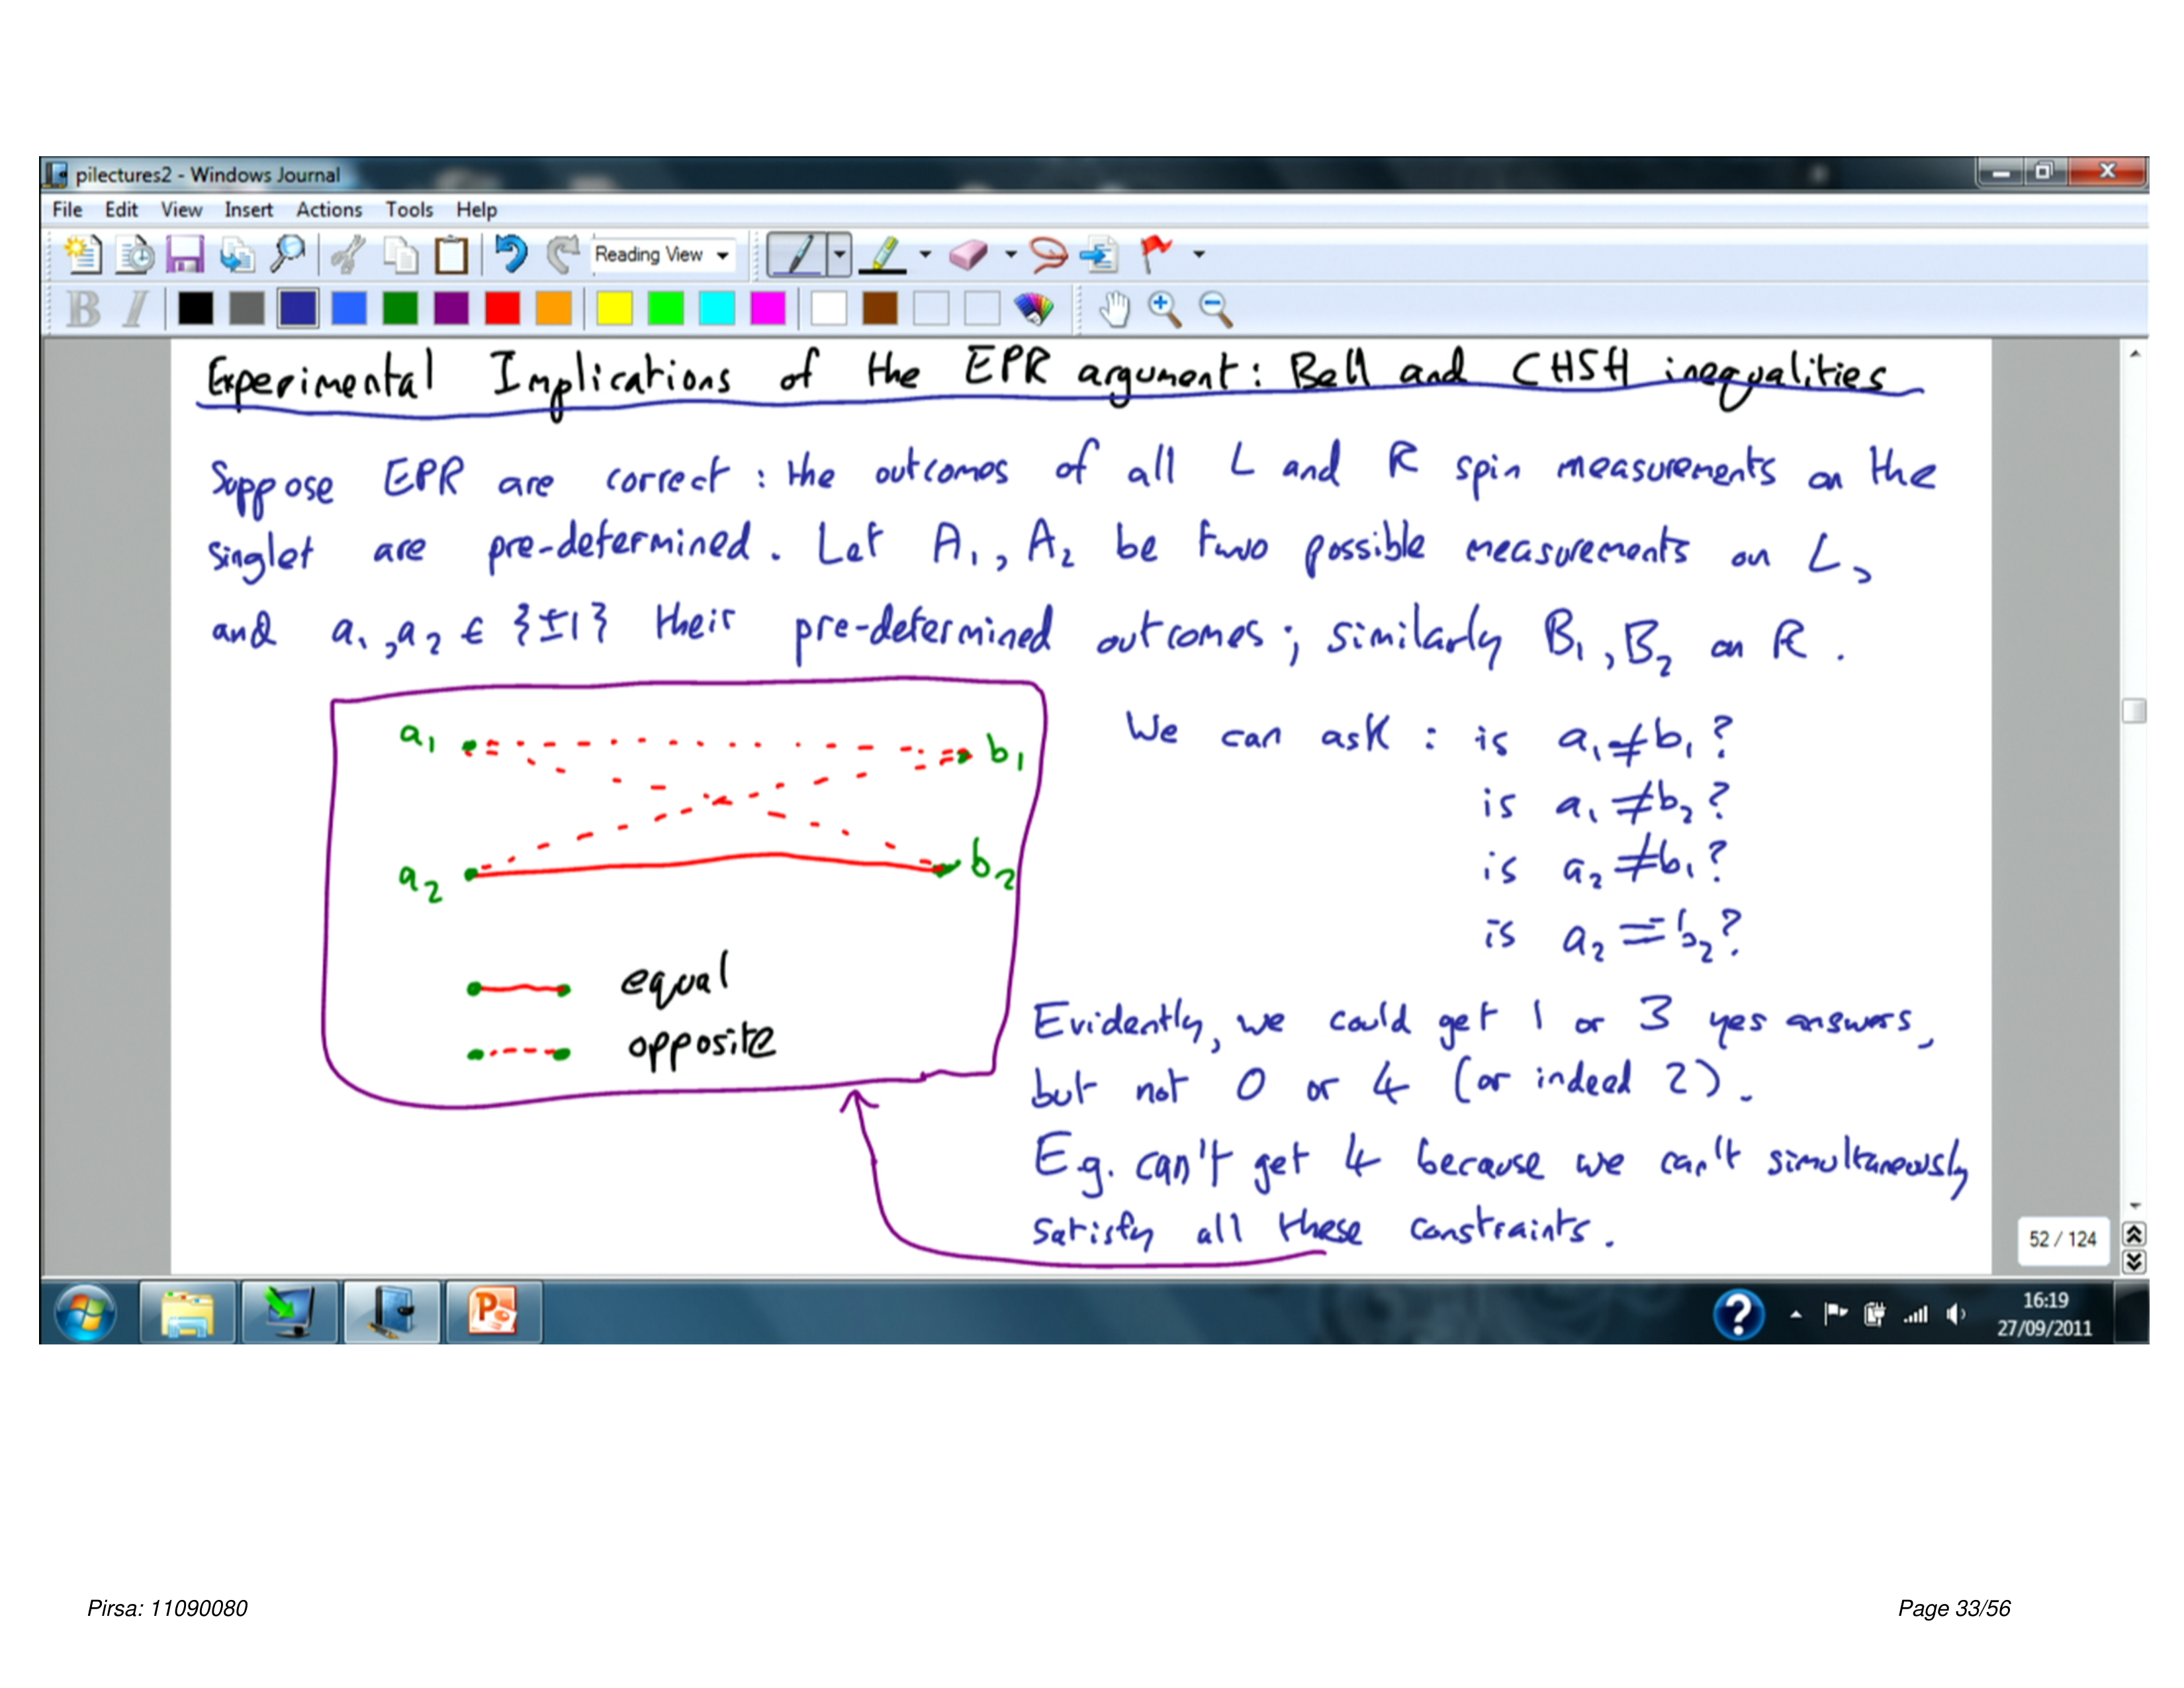 pilectures2 - Windows Journal
File Edit View Insert Actions Tools Help
Reading View
B I
Experimental Implications of the EPR argument: Bell and CHSH inequalities
Suppose EPR are correct : the outcomes of all L and R spin measurements on the
singlet are pre-determined. Let A₁, A₂ be two possible measurements on L,
and a₁, a₂ ∈ {±1} their pre-determined outcomes; similarly B₁, B₂ on R.
a₁ b₁
a₂ b₂
equal
opposite
We can ask : is a₁≠b₁?
is a₁≠b₂?
is a₂≠b₁?
is a₂=b₂?
Evidently, we could get 1 or 3 yes answers,
but not 0 or 4 (or indeed 2).
E.g. can't get 4 because we can't simultaneously
satisfy all these constraints.
52 / 124
16:19
27/09/2011
Pirsa: 11090080
Page 33/56